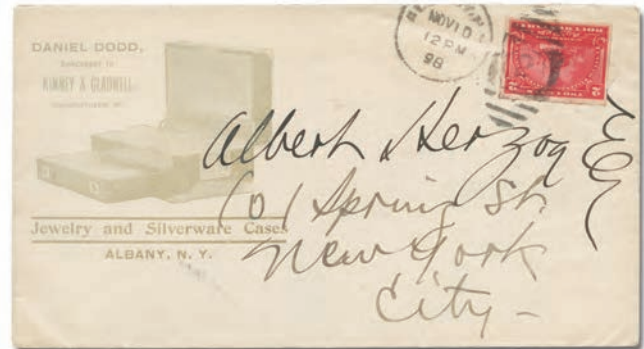 DANIEL DODD,
SUCCESSOR TO
KINNEY & GLADWELL
Jewelry and Silverware Cases
ALBANY, N. Y.
NOV 10
12 PM
98
Albert Herzog Esq
601 Spring St.
New York
City-